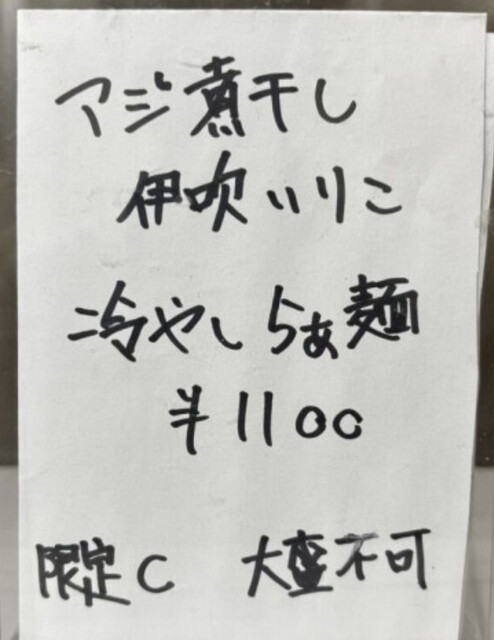 アジ煮干し
伊吹いりこ
冷やしらぁ麺
¥1100
限定C 大盛不可